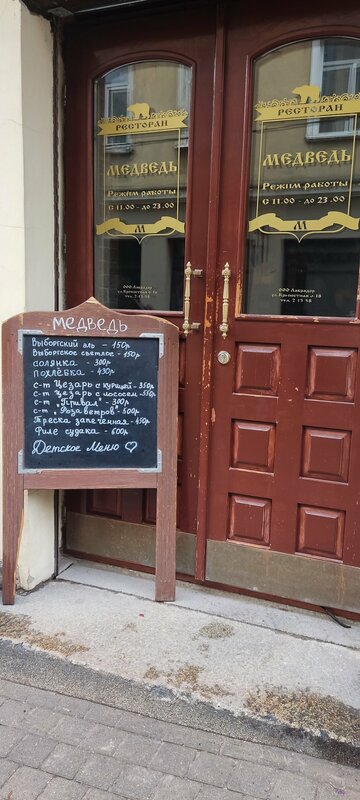 РЕСТОРАН
МЕДВЕДЬ
Режим работы
с 11.00 - до 23.00
М
РЕСТОРАН
МЕДВЕДЬ
Режим работы
с 11.00 - до 23.00
М
ул. Крепостная
медведь
Выборгский эль - 150р
Выборгское светлое - 150р.
солянка - 300р
похлёбка - 430р
с-т Цезарь с курицей - 350р
с-т Цезарь с лососем - 550р
с-т "Привал" - 300р
с-т "Роза ветров" - 500р
Треска запечённая - 450р
Филе судака - 600р
Детское Меню ♡